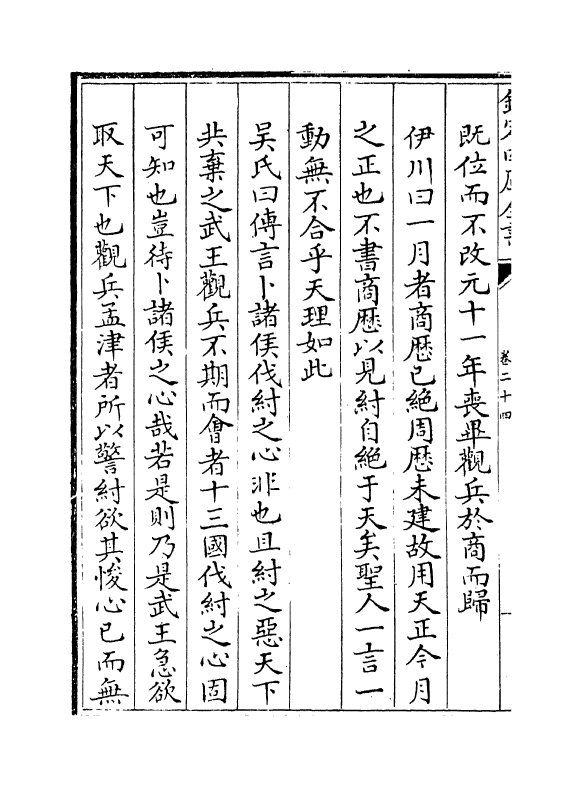 欽定四庫全書
卷二十四
既位而不改元十一年喪畢觀兵於商而歸
伊川曰一月者商歷已絶周歷未建故用天正今月
之正也不書商歷以見紂自絶于天矣聖人一言一
動無不合乎天理如此
吴氏曰傳言卜諸侯伐紂之心非也且紂之惡天下
共棄之武王觀兵不期而會者十三國伐紂之心固
可知也豈待卜諸侯之心哉若是則乃是武王急欲
取天下也觀兵孟津者所以警紂欲其悛心已而無